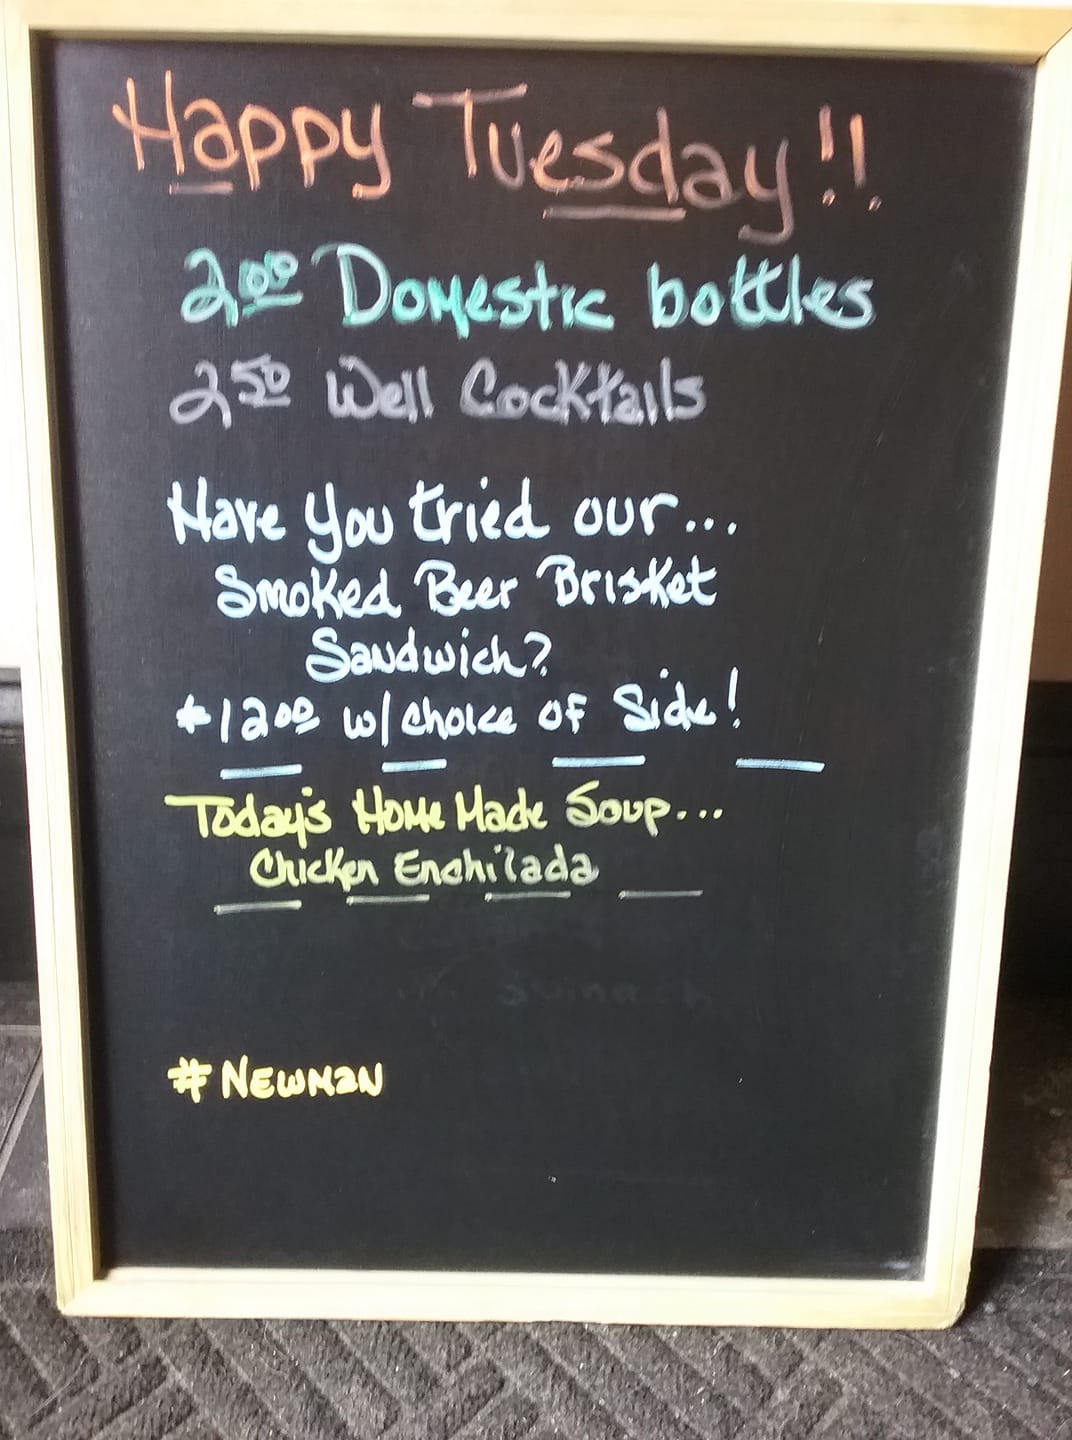 Happy Tuesday!!
2.00 Domestic bottles
2.50 Well Cocktails
Have you tried our...
Smoked Beer Brisket
Sandwich?
$12.00 w/choice of Side!
Today's Home Made Soup...
Chicken Enchilada
#Newman